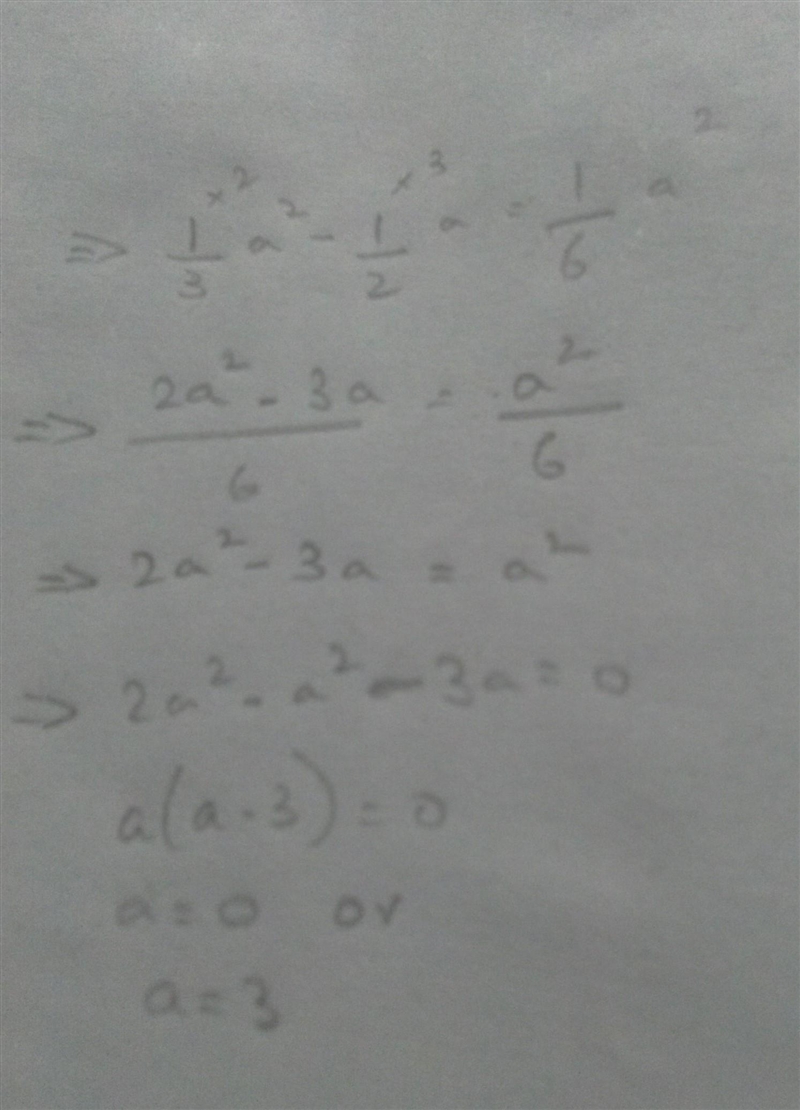 ⇒ 1/3 ×2 a² - 1/2 ×3 a = 1/6 a²
⇒ (2a² - 3a)/6 = a²/6
⇒ 2a² - 3a = a²
⇒ 2a² - a² - 3a = 0
a(a - 3) = 0
a = 0 or
a = 3